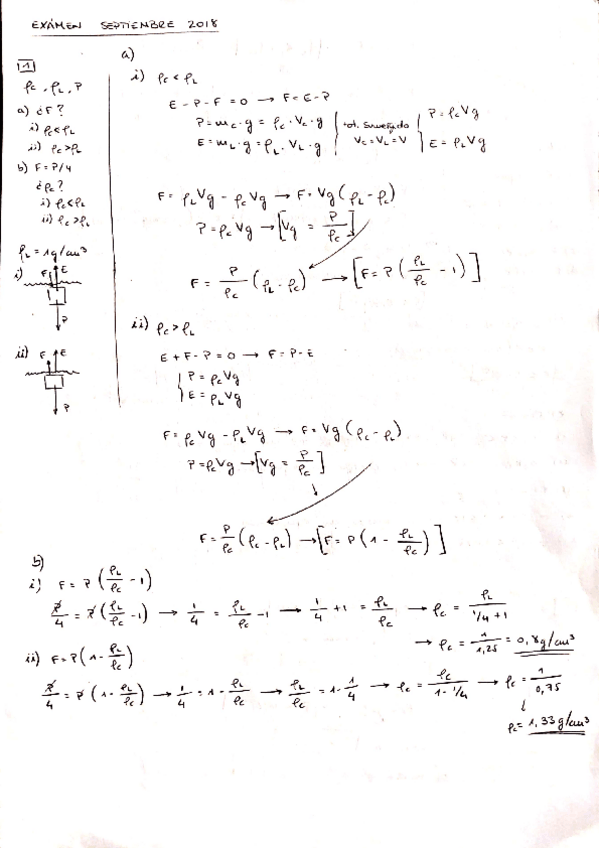 EXÁMEN SEPTIEMBRE 2018
1
ρc, ρL, P
a) ¿F?
i) ρc<ρL
ii) ρc>ρL
b) F=P/4
¿ρc?
i) ρc<ρL
ii) ρc>ρL
ρL=1g/cm³
i) F E
P
ii) F E
P
a)
i) ρc<ρL
E-P-F=0 → F=E-P
P=mc·g=ρc·Vc·g
E=mL·g=ρL·VL·g
tot. Sumergido
Vc=VL=V
P=ρcVg
E=ρLVg
F=ρLVg-ρcVg → F=Vg(ρL-ρc)
P=ρcVg → [Vg=P/ρc]
F=P/ρc(ρL-ρc) → [F=P(ρL/ρc-1)]
ii) ρc>ρL
E+F-P=0 → F=P-E
P=ρcVg
E=ρLVg
F=ρcVg-ρLVg → F=Vg(ρc-ρL)
P=ρcVg → [Vg=P/ρc]
F=P/ρc(ρc-ρL) → [F=P(1-ρL/ρc)]
b)
i) F=P(ρL/ρc-1)
P/4=P(ρL/ρc-1) → 1/4=ρL/ρc-1 → 1/4+1=ρL/ρc → ρc=ρL/(1/4+1)
→ ρc=1/1,25=0,8g/cm³
ii) F=P(1-ρL/ρc)
P/4=P(1-ρL/ρc) → 1/4=1-ρL/ρc → ρL/ρc=1-1/4 → ρc=ρc/(1-1/4) → ρc=1/0,75
ρc=1,33g/cm³